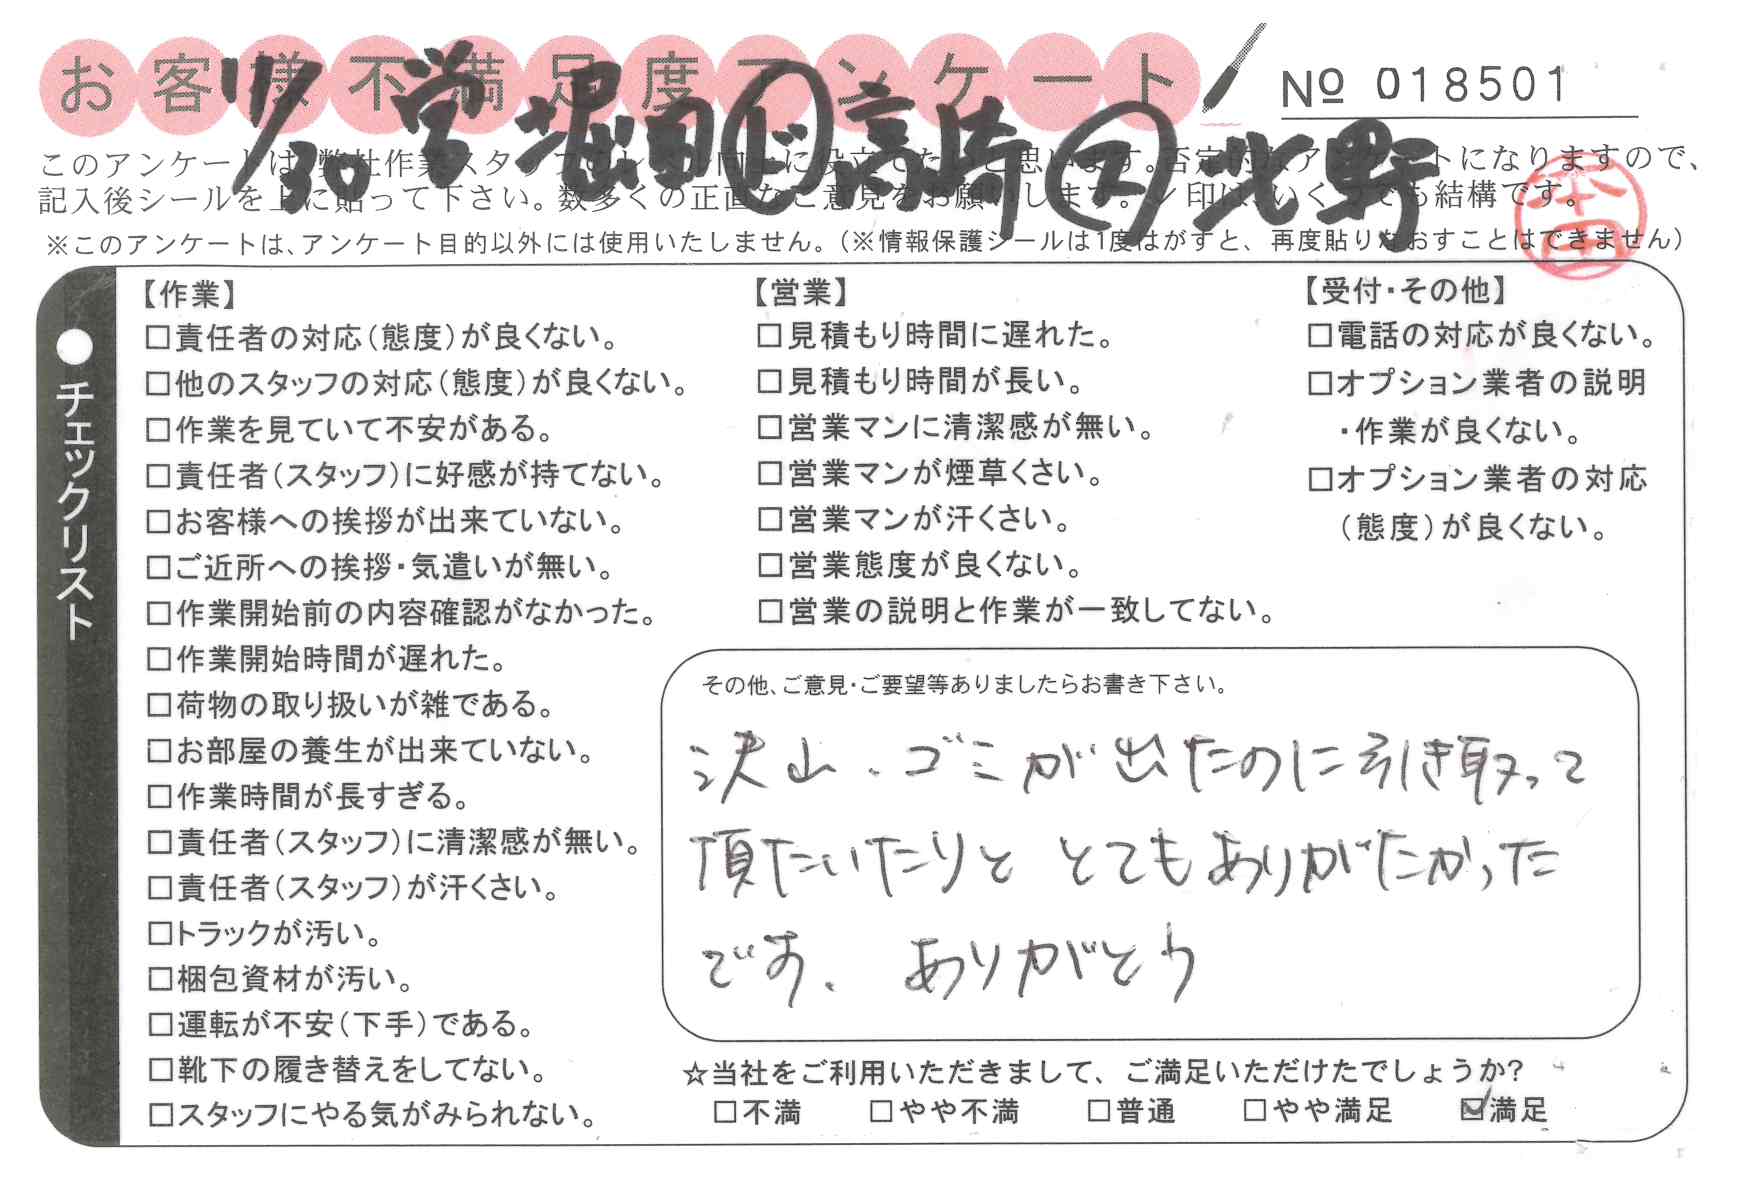 お客様不満足度アンケート
No 018501
11/30 営 堀田 ド 高崎 ス 北野
このアンケートは、弊社作業スタッフのレベル向上に役立てたいと思います。否定的なアンケートになりますので、
記入後シールを上に貼って下さい。数多くの正直なご意見をお願いします。✓印は、いくつでも結構です。
本田
※このアンケートは、アンケート目的以外には使用いたしません。(※情報保護シールは1度はがすと、再度貼りなおすことはできません)
●チェックリスト
【作業】
□責任者の対応(態度)が良くない。
□他のスタッフの対応(態度)が良くない。
□作業を見ていて不安がある。
□責任者(スタッフ)に好感が持てない。
□お客様への挨拶が出来ていない。
□ご近所への挨拶・気遣いが無い。
□作業開始前の内容確認がなかった。
□作業開始時間が遅れた。
□荷物の取り扱いが雑である。
□お部屋の養生が出来ていない。
□作業時間が長すぎる。
□責任者(スタッフ)に清潔感が無い。
□責任者(スタッフ)が汗くさい。
□トラックが汚い。
□梱包資材が汚い。
□運転が不安(下手)である。
□靴下の履き替えをしてない。
□スタッフにやる気がみられない。
【営業】
□見積もり時間に遅れた。
□見積もり時間が長い。
□営業マンに清潔感が無い。
□営業マンが煙草くさい。
□営業マンが汗くさい。
□営業態度が良くない。
□営業の説明と作業が一致してない。
【受付・その他】
□電話の対応が良くない。
□オプション業者の説明
・作業が良くない。
□オプション業者の対応
(態度)が良くない。
その他、ご意見・ご要望等ありましたらお書き下さい。
沢山、ゴミが出たのに引き取って
頂たいたりと とてもありがたかった
です。ありがとう
☆当社をご利用いただきまして、ご満足いただけたでしょうか?
□不満 □やや不満 □普通 □やや満足 ☑満足